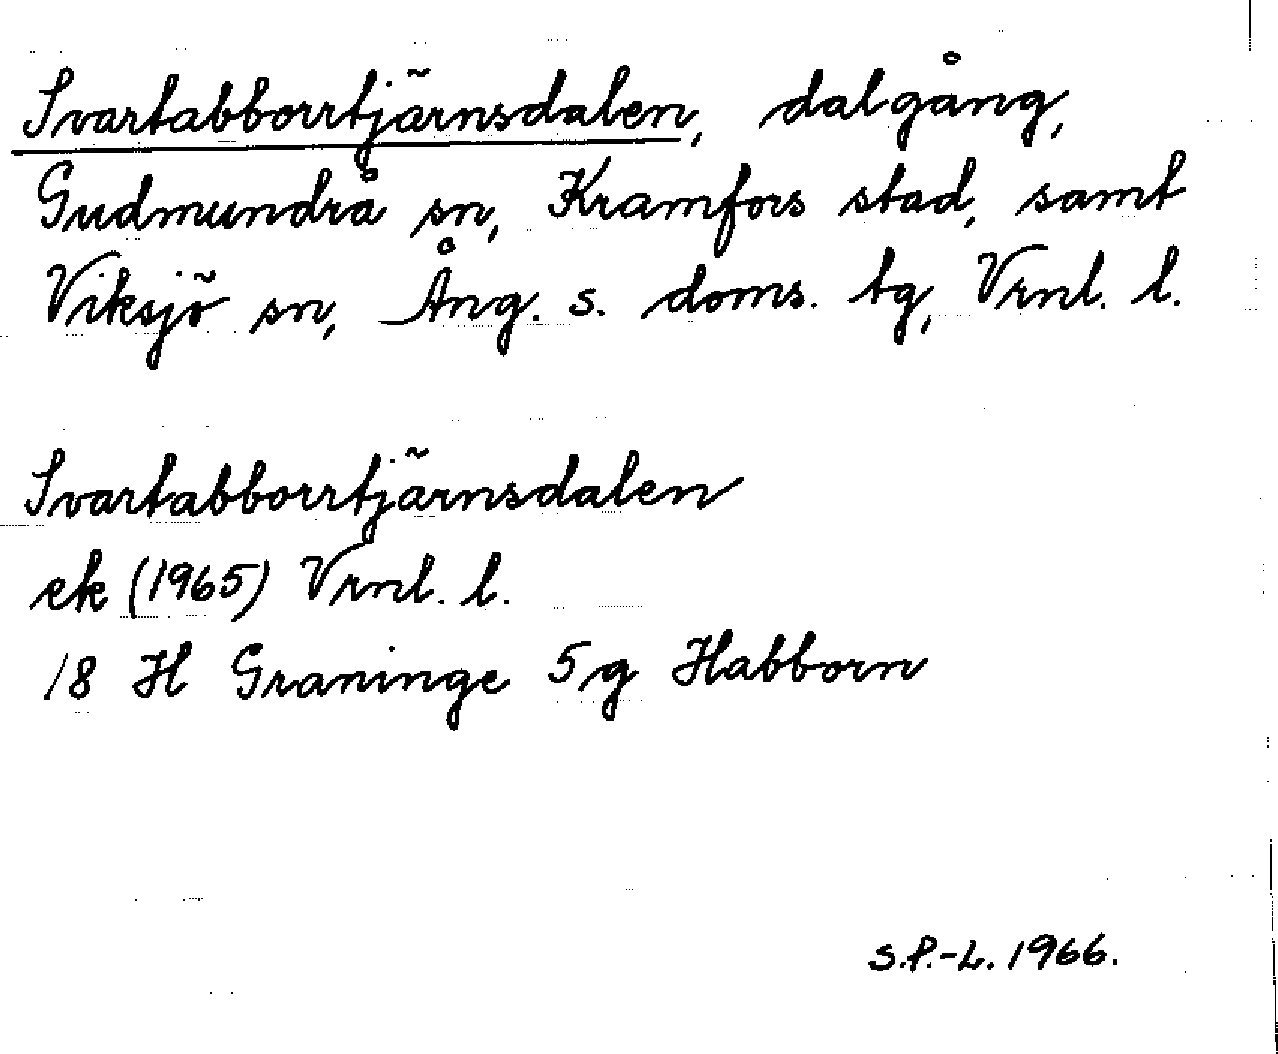 Svartabborrtjärnsdalen, dalgång,
Gudmundrå sn, Kramfors stad, samt
Viksjö sn, Ång. s. doms. tg, Vrnl. l.
Svartabborrtjärnsdalen
ek (1965) Vrnl. l.
18 H Graninge 5g Habborn
S.P.-L. 1966.